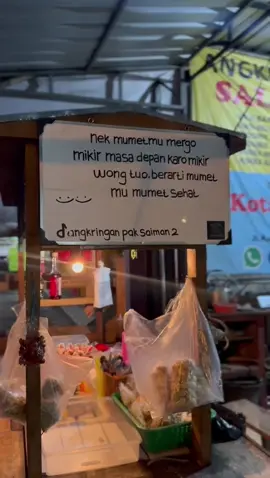 nek mumetmu mergo
mikir masa depan karo mikir
wong tuo, berarti mumet
mu mumet sehat
angkringan pak saiman 2
ANGK
SA
Kot